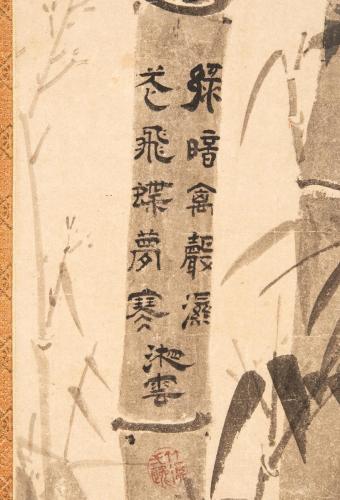 綠暗禽聲濕
花飛蝶夢寒
湘雲